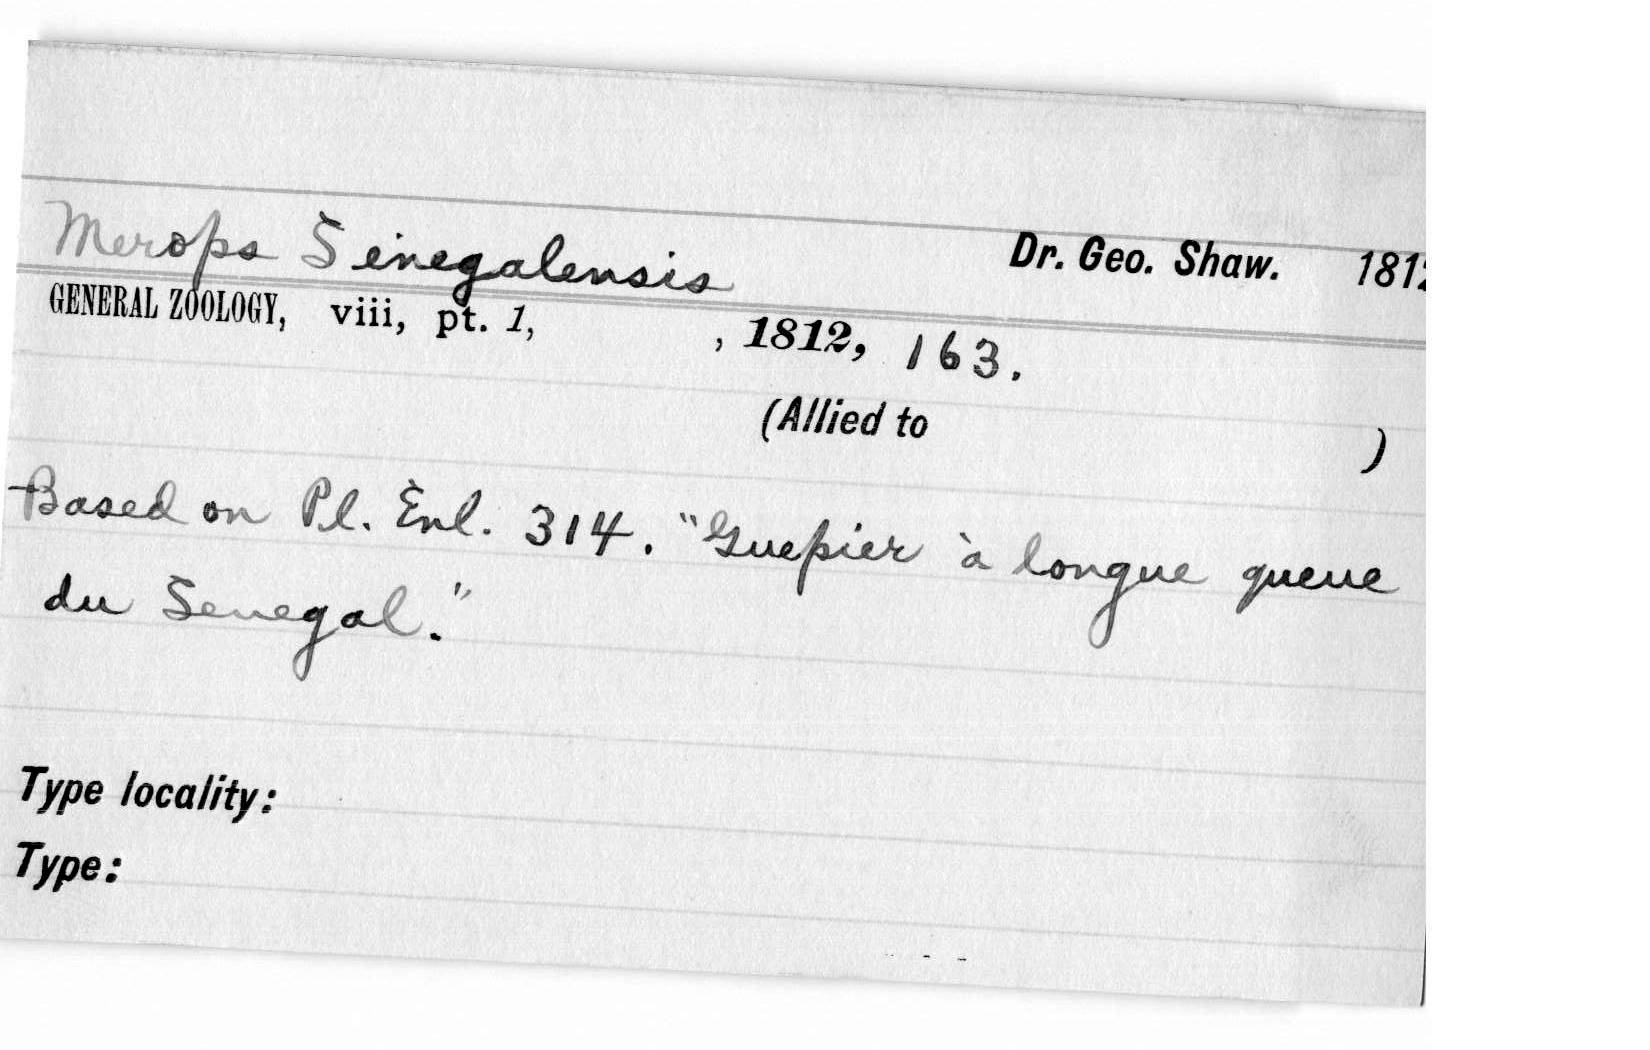 Merops Senegalensis Dr. Geo. Shaw. 1812
GENERAL ZOOLOGY, viii, pt. 1, , 1812, 163.
(Allied to )
Based on Pl. Enl. 314. "Guepier à longue queue
du Senegal."
Type locality:
Type: